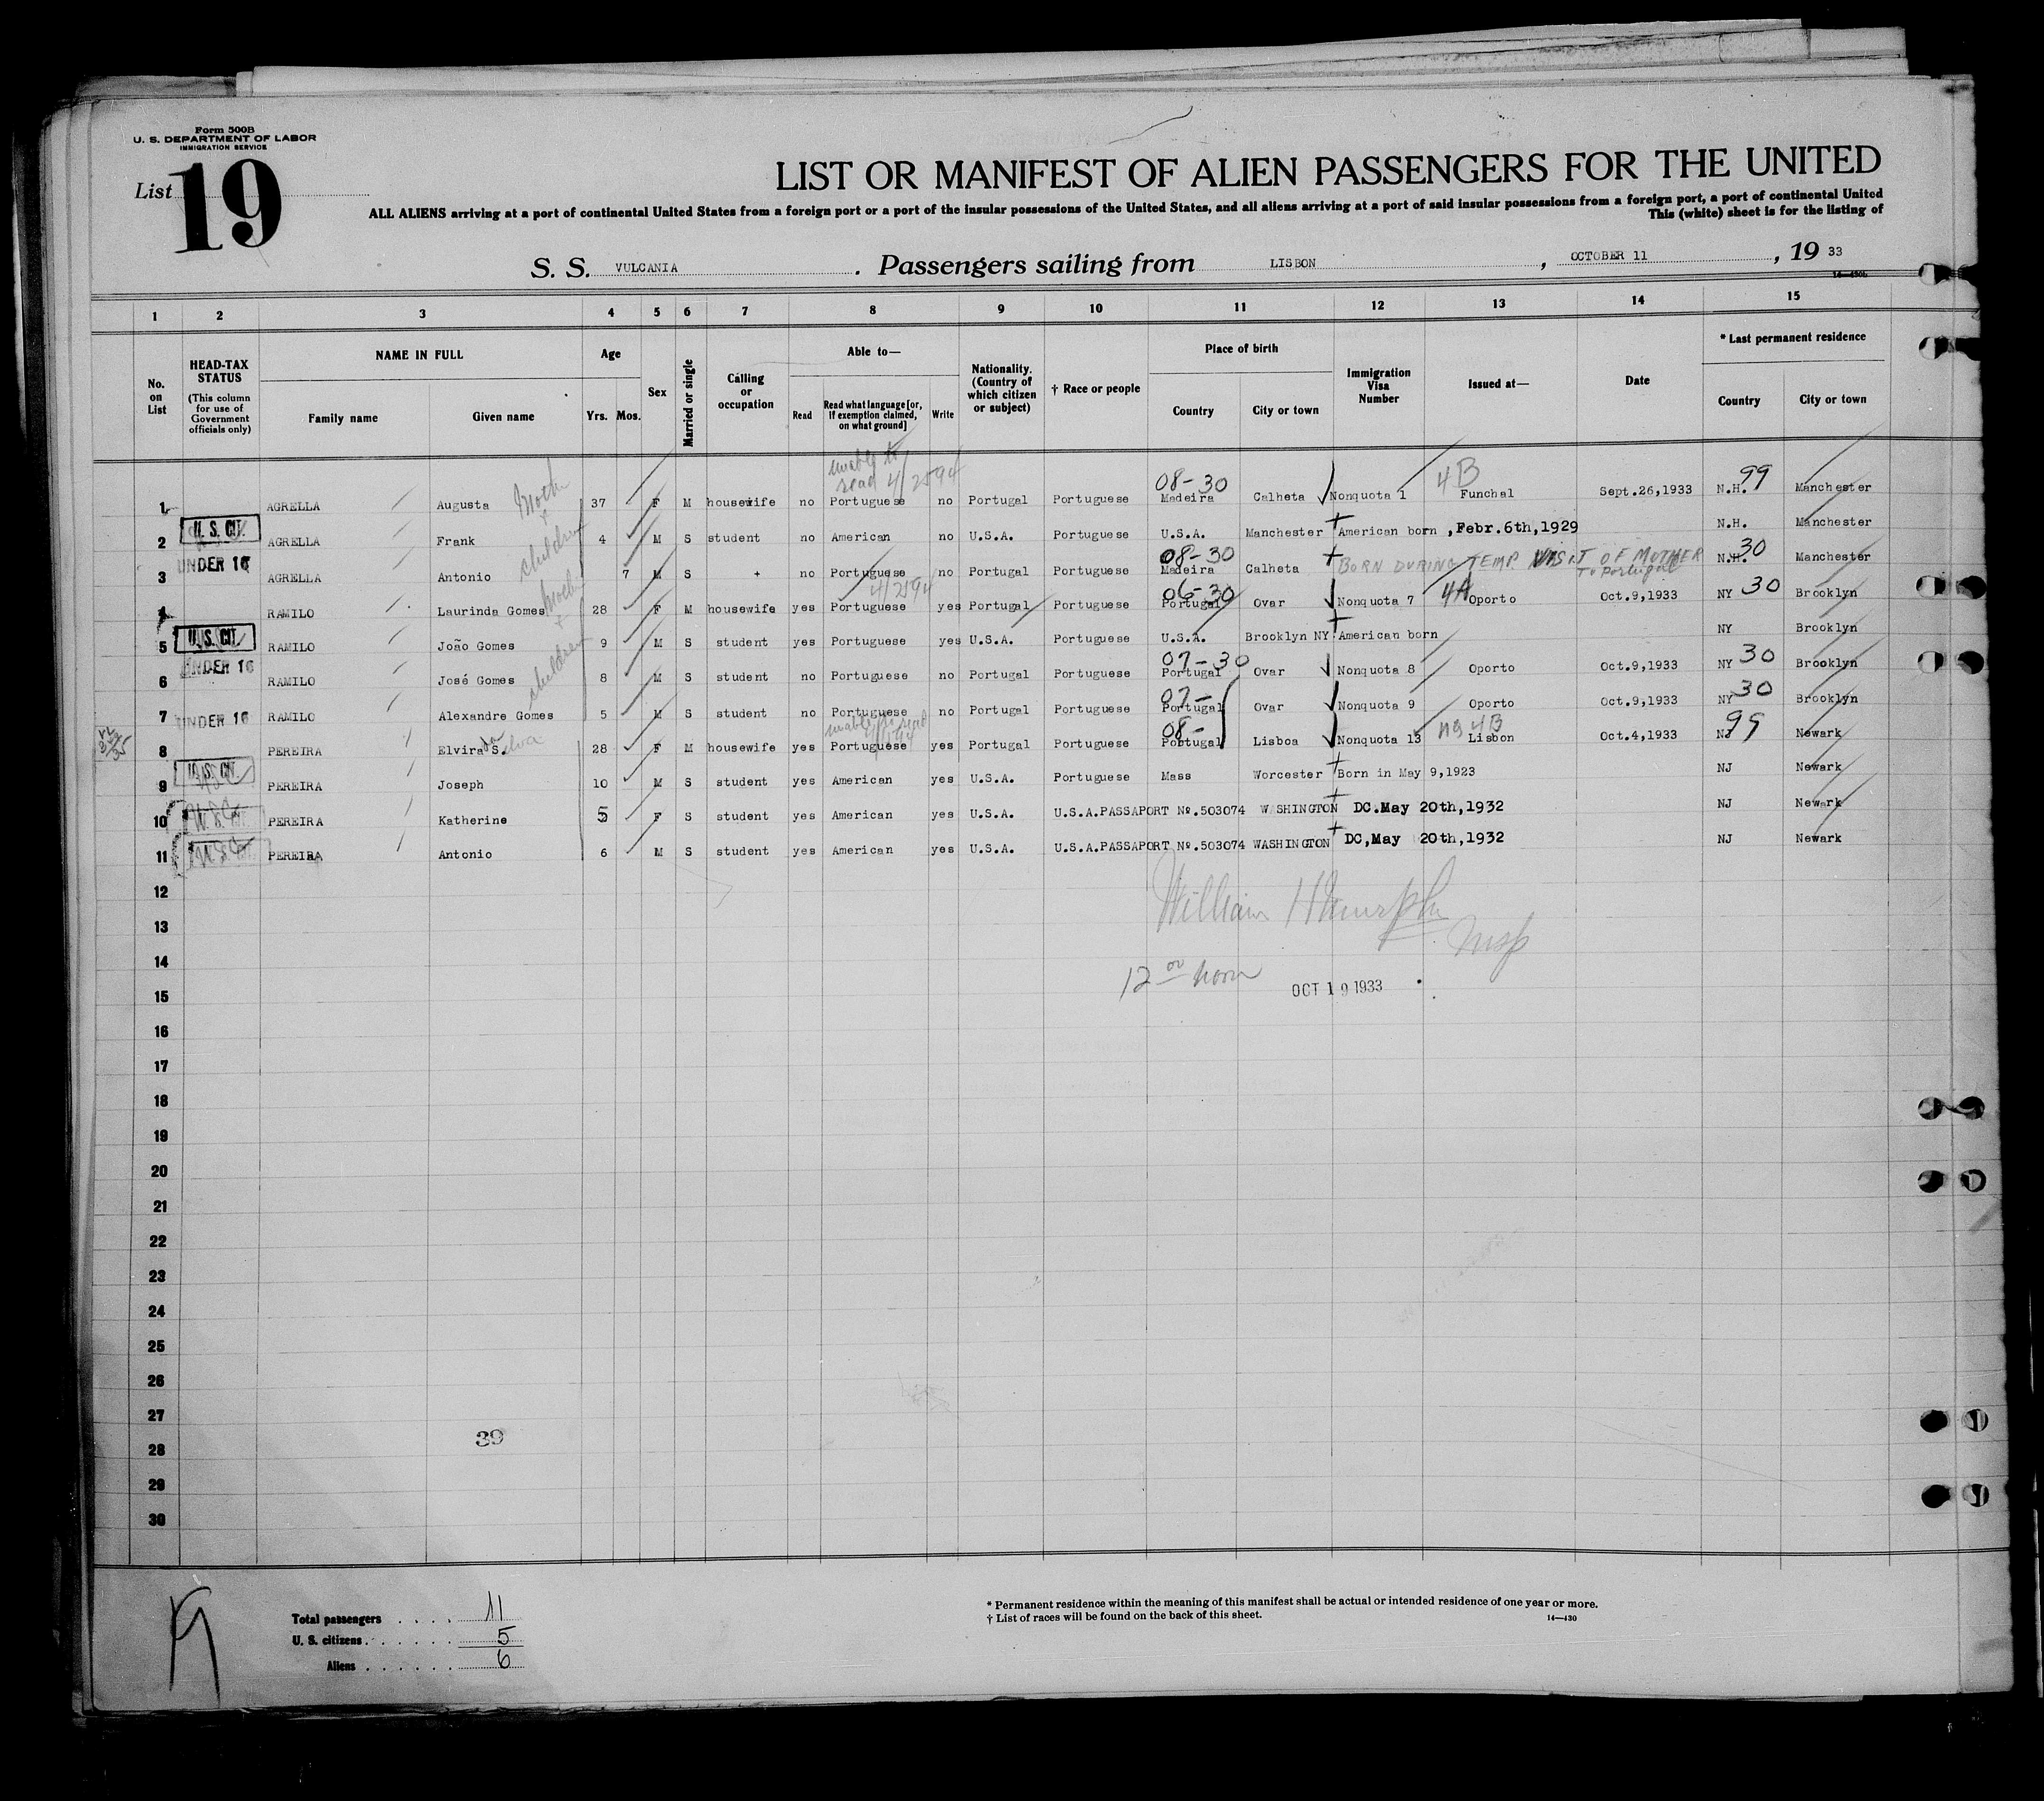 Form 500B
U. S. DEPARTMENT OF LABOR
IMMIGRATION SERVICE
List 19
LIST OR MANIFEST OF ALIEN PASSENGERS FOR THE UNITED
ALL ALIENS arriving at a port of continental United States from a foreign port or a port of the insular possessions of the United States, and all aliens arriving at a port of said insular possessions from a foreign port, a port of continental United
This (white) sheet is for the listing of
S. S. VULCANIA . Passengers sailing from LISBON , OCTOBER 11 , 19 33
14—430b
1 2 3 4 5 6 7 8 9 10 11 12 13 14 15
No. on List
HEAD-TAX STATUS (This column for use of Government officials only)
NAME IN FULL
Family name Given name
Age
Yrs. Mos.
Sex
Married or single
Calling or occupation
Able to—
Read Read what language [or, if exemption claimed, on what ground] Write
Nationality. (Country of which citizen or subject)
† Race or people
Place of birth
Country City or town
Immigration Visa Number
Issued at—
Date
* Last permanent residence
Country City or town
unable to
read 4/2594
Mother + children
08-30 4B 99
1 AGRELLA Augusta 37 F M housewife no Portuguese no Portugal Portuguese Madeira Calheta Nonquota 1 Funchal Sept.26,1933 N.H. Manchester
2 U. S. CIT. AGRELLA Frank 4 M S student no American no U.S.A. Portuguese U.S.A. Manchester American born , Febr.6th,1929 N.H. Manchester
08-30 30
3 UNDER 16 AGRELLA Antonio 7 M S + no Portuguese no Portugal Portuguese Madeira Calheta BORN DURING TEMP. VISIT OF MOTHER To Portugal N.H. Manchester
Mother + children
4/2594 06-30 4A 30
4 RAMILO Laurinda Gomes 28 F M housewife yes Portuguese yes Portugal Portuguese Portugal Ovar Nonquota 7 Oporto Oct.9,1933 NY Brooklyn
5 U. S. CIT. RAMILO João Gomes 9 M S student yes Portuguese yes U.S.A. Portuguese U.S.A. Brooklyn NY American born NY Brooklyn
07-30 30
6 UNDER 16 RAMILO José Gomes 8 M S student no Portuguese no Portugal Portuguese Portugal Ovar Nonquota 8 Oporto Oct.9,1933 NY Brooklyn
07- 30
7 UNDER 16 RAMILO Alexandre Gomes 5 M S student no Portuguese no Portugal Portuguese Portugal Ovar Nonquota 9 Oporto Oct.9,1933 NY Brooklyn
unable to read
08- 4B 99
8 PEREIRA Elvira da S.ilva 28 F M housewife yes Portuguese yes Portugal Portuguese Portugal Lisboa Nonquota 13 Lisbon Oct.4,1933 NJ Newark
9 U. S. CIT. PEREIRA Joseph 10 M S student yes American yes U.S.A. Portuguese Mass Worcester Born in May 9,1923 NJ Newark
10 PEREIRA Katherine 5 F S student yes American yes U.S.A. U.S.A.PASSAPORT Nº.503074 WASHINGTON DC.May 20th,1932 NJ Newark
11 PEREIRA Antonio 6 M S student yes American yes U.S.A. U.S.A.PASSAPORT Nº.503074 WASHINGTON DC,May 20th,1932 NJ Newark
12
William H Murphy
13
Insp
14
12 00 noon
15
OCT 19 1933
16
17
18
19
20
21
22
23
24
25
26
27
39
28
29
30
19
Total passengers . . . . 11
U. S. citizens . . . . . . 5
Aliens . . . . . . 6
* Permanent residence within the meaning of this manifest shall be actual or intended residence of one year or more.
† List of races will be found on the back of this sheet.
14—430